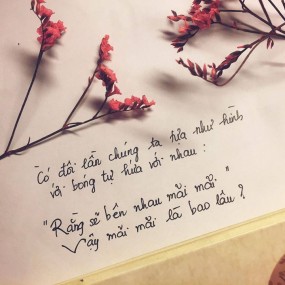 Có đôi lần chúng ta tựa như hình
và bóng tự hứa với nhau :
"Rằng sẽ bên nhau mãi mãi"
Vậy mãi mãi là bao lâu ?